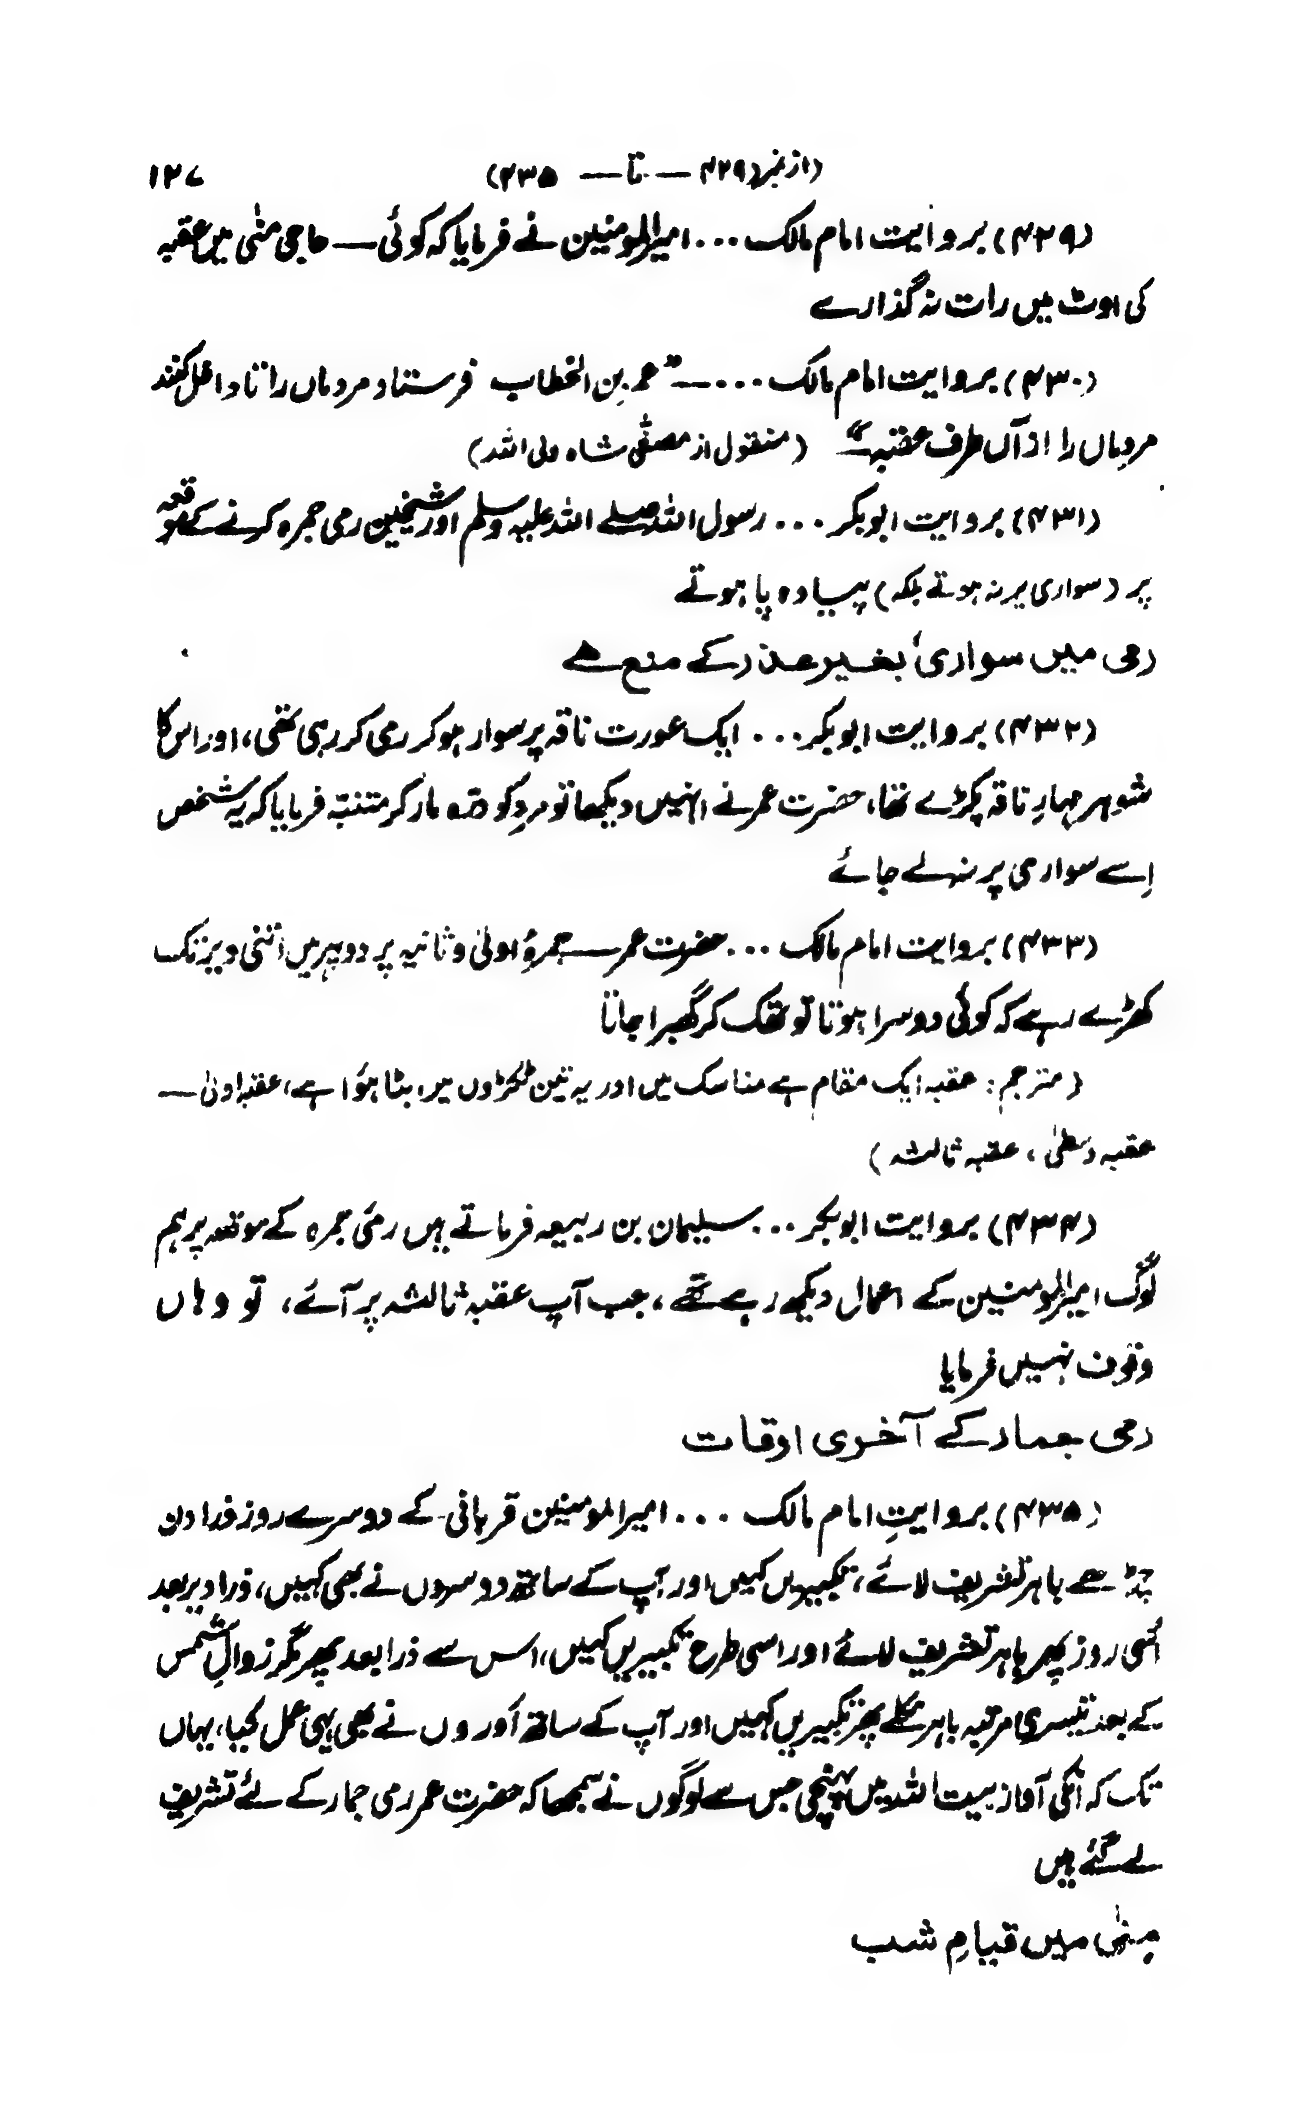 (از نمبر (۴۲۹ — تا — ۴۳۵) ۱۲۷
(۴۲۹) بروایت امام مالک ... امیرالمومنین نے فرمایا کہ کوئی — حاجی منیٰ میں عقبہ
کی اوٹ میں رات نہ گذارے
(۴۳۰) بروایت امام مالک ....— "عمر بن الخطاب فرستاد مردماں را تا داخل کنند
مردماں را از آں طرف عقبہ" (منقول از مصفّٰی شاہ ولی اللہ)
(۴۳۱) بروایت ابوبکر ... رسول اللہ صلے اللہ علیہ وسلم اور شیخین رمی جمرہ کرنے کے موقعہ
پر (سواری پر نہ ہوتے بلکہ) پیادہ پا ہوتے
رمی میں سواری بغیر عذر کے منع ہے
(۴۳۲) بروایت ابوبکر ... ایک عورت ناقہ پر سوار ہو کر رمی کر رہی تھی، اور اس کا
شوہر مہارِ ناقہ پکڑے تھا، حضرت عمر نے انہیں دیکھا تو مرد کو درّہ مار کر متنبّہ فرمایا کہ یہ شخص
اِسے سواری پر نہ لے جائے
(۴۳۳) بروایت امام مالک ... حضرت عمر — جمرۂ اولیٰ و ثانیہ پر دوپہر میں اتنی دیر تک
کھڑے رہے کہ کوئی دوسرا ہوتا تو تھک کر گھبرا جاتا
(مترجم: عقبہ ایک مقام ہے مناسک میں اور یہ تین ٹکڑوں میں بٹا ہؤا ہے، عقبہ اولیٰ —
عقبہ وسطیٰ، عقبہ ثالثہ)
(۴۳۴) بروایت ابوبکر ... سلیمان بن ربیعہ فرماتے ہیں رمیٔ جمرہ کے موقعہ پر ہم
لوگ امیرالمومنین کے اعمال دیکھ رہے تھے، جب آپ عقبہ ثالثہ پر آئے، تو وہاں
وقوف نہیں فرمایا
رمی جمار کے آخری اوقات
(۴۳۵) بروایتِ امام مالک ... امیرالمومنین قربانی کے دوسرے روز ذرا دن
چڑھے باہر تشریف لائے، تکبیریں کہیں اور آپ کے ساتھ دوسروں نے بھی کہیں، ذرا دیر بعد
اُسی روز پھر باہر تشریف لائے اور اسی طرح تکبیریں کہیں، اس سے ذرا بعد پھر مگر زوالِ شمس
کے بعد تیسری مرتبہ باہر نکلے پھر تکبیریں کہیں اور آپ کے ساتھ اَوروں نے بھی یہی عمل کیا، یہاں
تک کہ انکی آواز بیت اللہ میں پہنچی جس سے لوگوں نے سمجھا کہ حضرت عمر رمی جمار کے لئے تشریف
لے گئے ہیں
مِنیٰ میں قیامِ شب